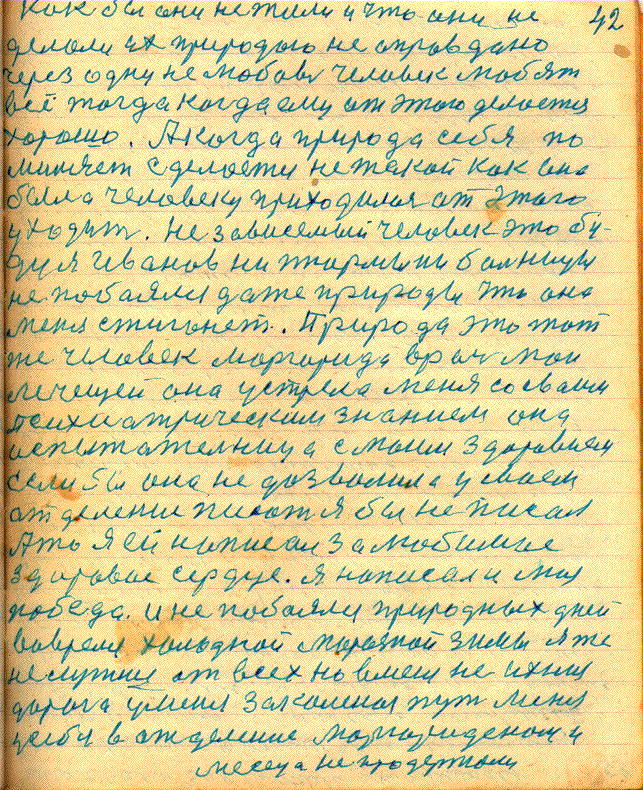 42
Как бы они не жили и что они не
делали их природою не оправдано
через одну не любовь человек любят
всё тогда когда ему от этого делается
хорошо. А когда природа себя по
меняет сделается не такой как она
была человеку приходился от этого
уходит. Не зависемый человек это бу-
ду я Иванов ни тюрьмы ни больницы
не побаялся даже природы что она
меня стигонет. Природа это тот
же человек Моргорида врач мой
лечещей она устрела меня со своим
психиатрическим знанием она
испытательница с моим здоровием
если бы она не дозволила у моем
отделении писат я бы не писал
А то я ей написал за любимое
здоровое сердце. Я написал и моя
победа. И не побаялся природных дней
вовремя холодной морозной зимы я же
не от всех но имею не ихняя
дорога у меня законная пут меня
в отделение Моргоридоном и
месеца не продержали